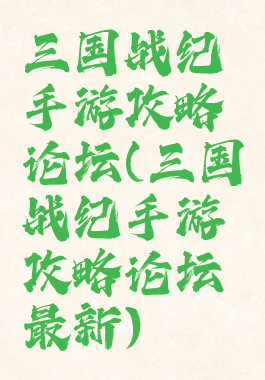 三国战纪
手游攻略
论坛(三国
战纪手游
攻略论坛
最新)